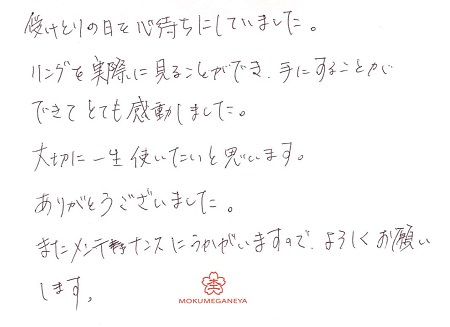 受けとりの日を心待ちにしていました。
リングを実際に見ることができ、手にすることが
できてとても感動しました。
大切に一生使いたいと思います。
ありがとうございました。
またメンテナンスにうかがいますので、よろしくお願い
します。
杢
MOKUMEGANEYA